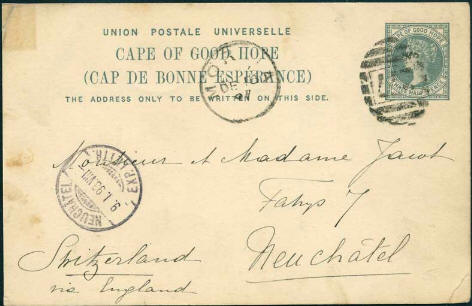 UNION POSTALE UNIVERSELLE
CAPE OF GOOD HOPE
(CAP DE BONNE ESPÉRANCE)
THE ADDRESS ONLY TO BE WRITTEN ON THIS SIDE.
CAPE OF GOOD HOPE
DE
NEUCHATEL
9. I. 93
EXP. LETTR.
Monsieur et Madame Jacot
Fahys 7
Neuchâtel
Switzerland
via England